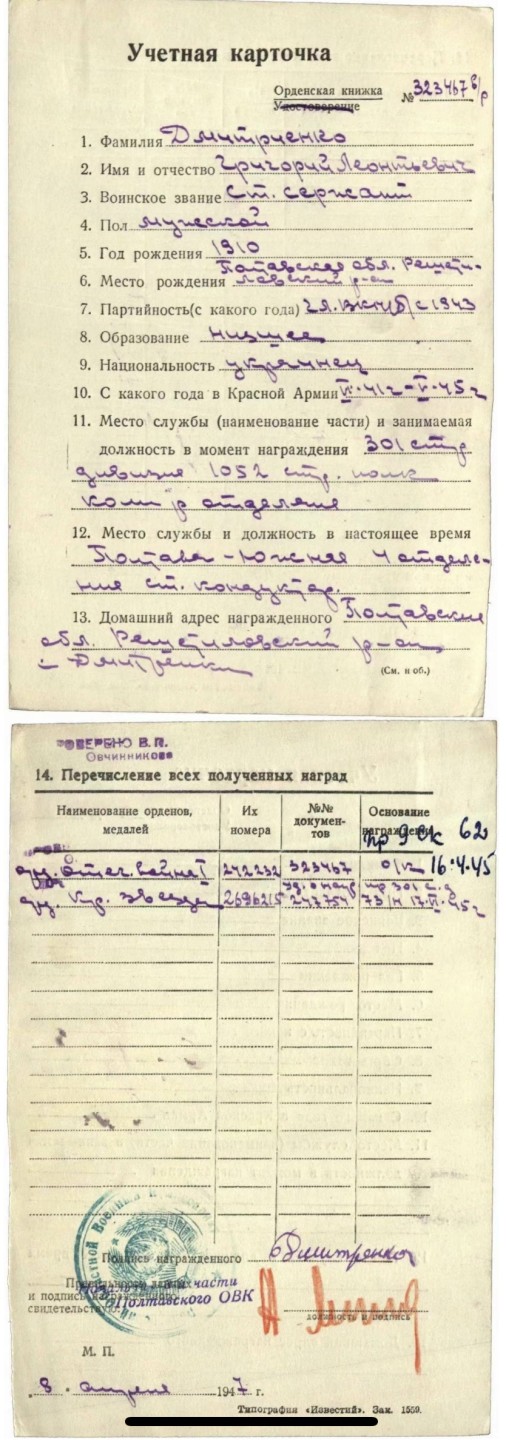 Учетная карточка
Орденская книжка
Удостоверение
№ 323467 б/р
1. Фамилия Дмитриченко
2. Имя и отчество Григорий Леонтьевич
3. Воинское звание Ст. сержант
4. Пол мужской
5. Год рождения 1910
Полтавская обл. Решети-
6. Место рождения ловский р-он
7. Партийность(с какого года) чл. ВКП(б) с 1943
8. Образование низшее
9. Национальность украинец
10. С какого года в Красной Армии VI-41г-V-45г
11. Место службы (наименование части) и занимаемая
должность в момент награждения 301 стр
дивизия 1052 стр. полк
ком-р отделения
12. Место службы и должность в настоящее время
Полтава-Южная 4 отделе-
ния ст. кондуктор.
13. Домашний адрес награжденного Полтавские
обл. Решетиловский р-он
с Дмитренки
(См. н об.)
ОВЕРЕНО В. П.
ОВЧИННИКОВА
14. Перечисление всех полученных наград
Наименование орденов, медалей
Их номера
№№ документов
Основание награждения
пр 9 ск 62
орд. Отеч. войны I 242232 323467 о/к 16.4.45
уд. о нагр. пр 301 с.д
орд. Кр. Звезда 2696215 247754 73/н 17.VI.45г
Подпись награжденного Дмитренко
Правильность данных
и подпись награжденного
свидетельствую:
части
Полтавского ОВК
должность и подпись
М. П.
8. апреля 1947 г.
Типография «Известий». Зак. 1559.